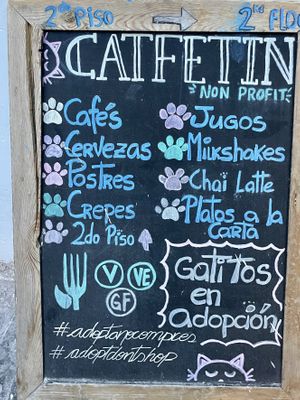 2do PISO → 2nd FLO
CATFETIN
NON PROFIT
Cafés
Jugos
Cervezas
Milkshakes
Postres
Chai Latte
Crepes
Platos a la
Carta
2do Piso
V
VE
GF
Gatitos
en
adopción
#adoptanocompres
#adoptdontshop